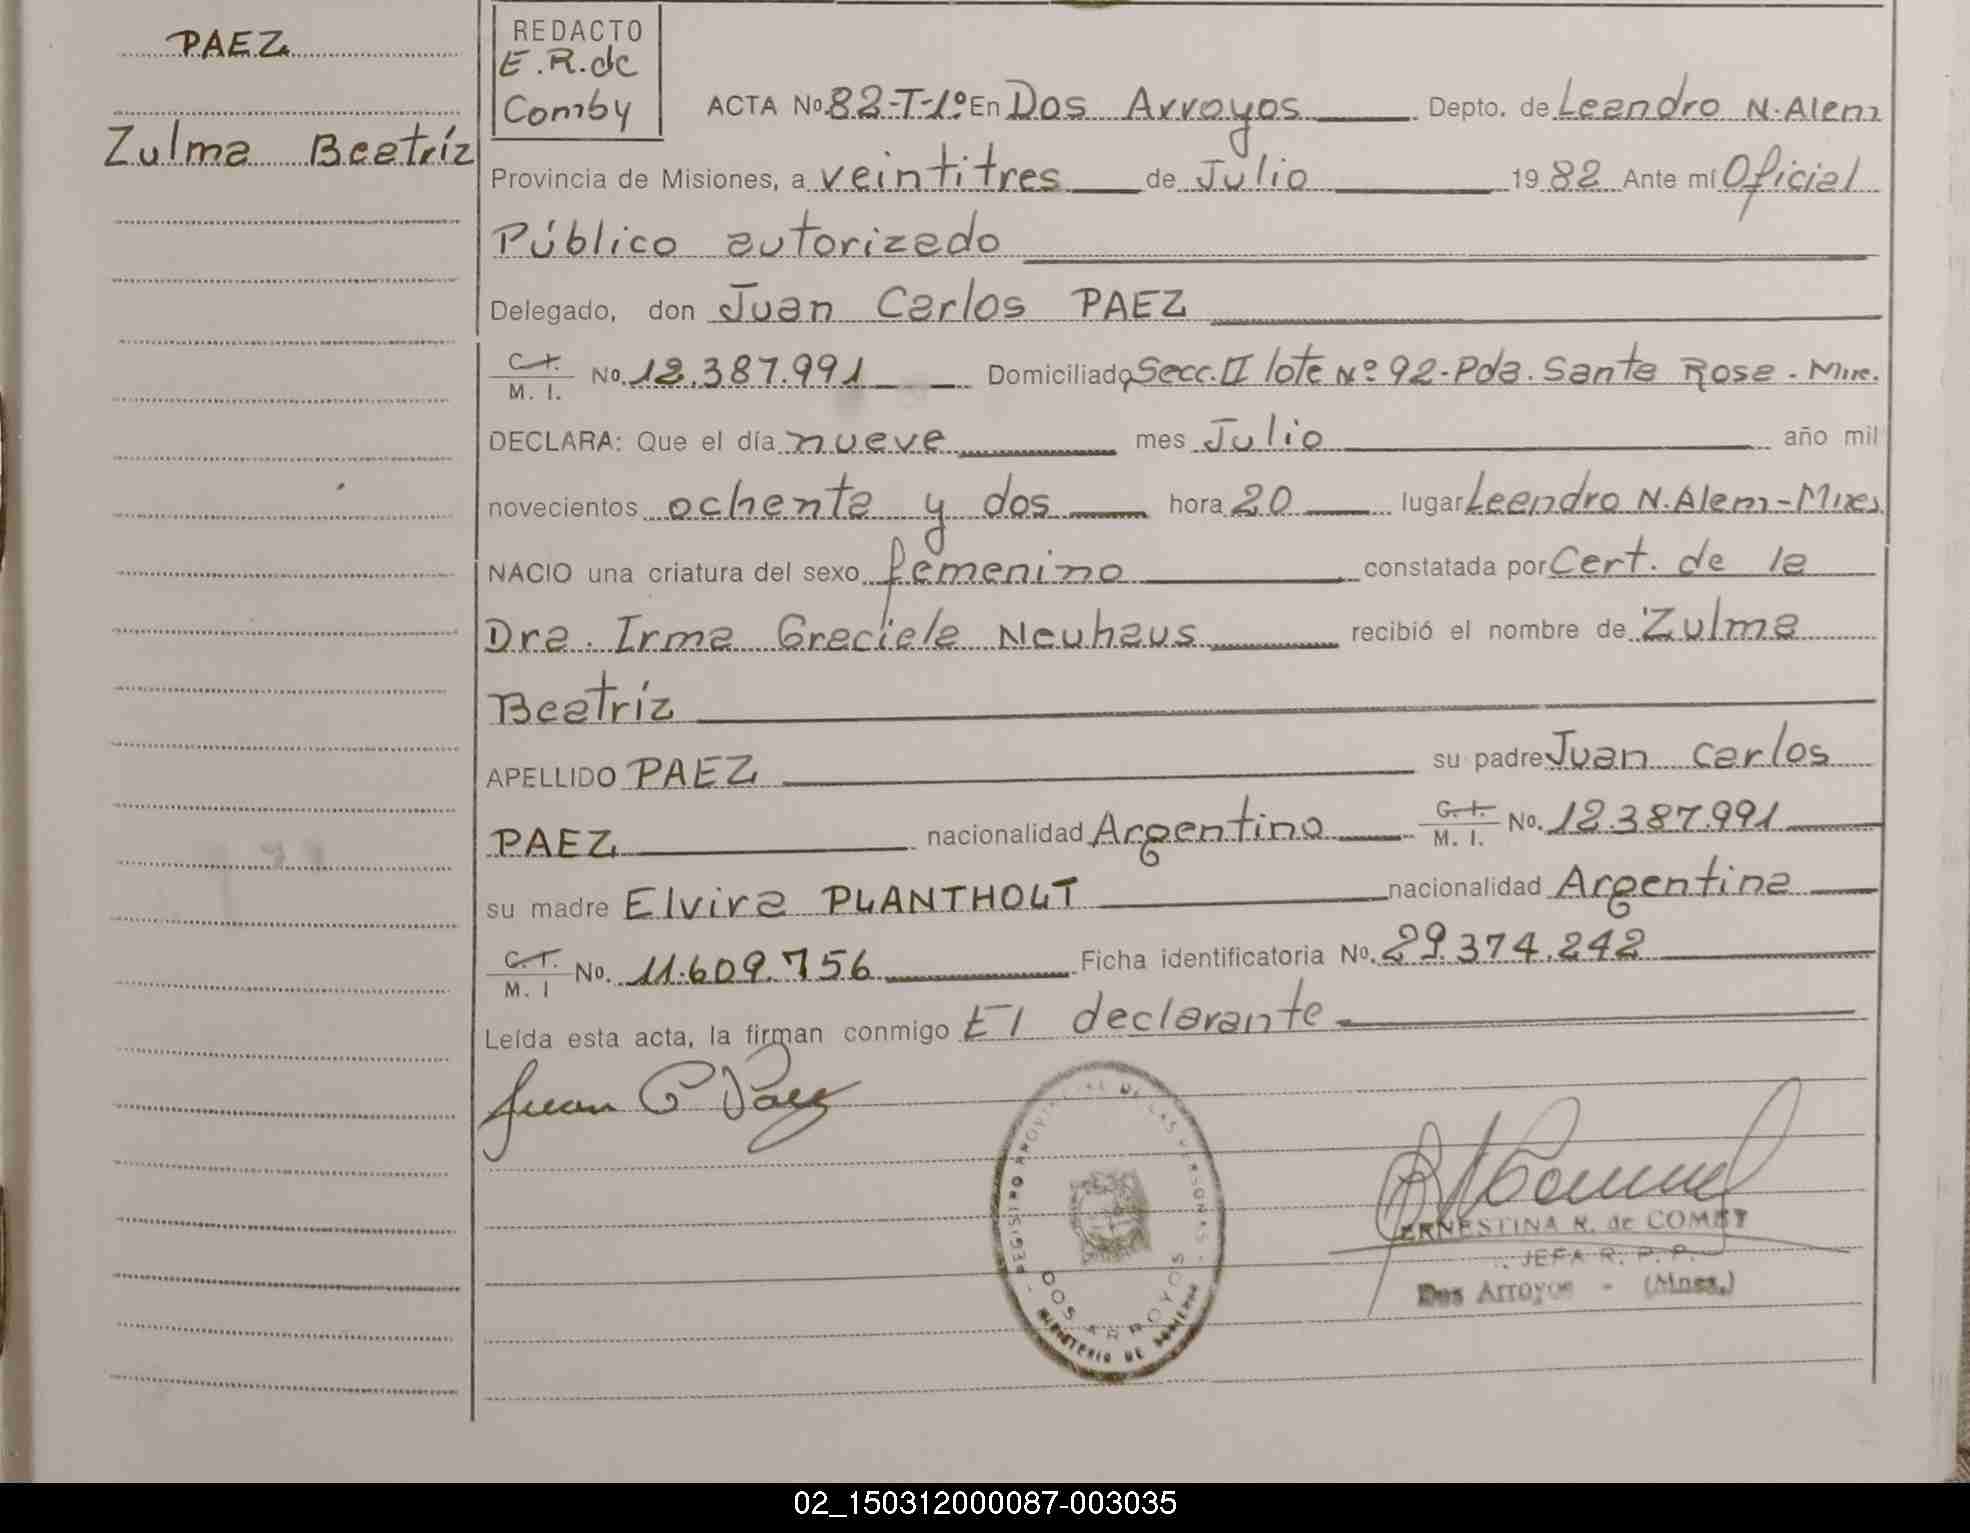 PAEZ
Zulma Beatríz
REDACTO
E.R.de
Comby
ACTA No. 82-T-1º En Dos Arroyos Depto. de Leandro N. Alem
Provincia de Misiones, a veintitres de Julio 1982 Ante mí Oficial
Público autorizado
Delegado, don Juan Carlos PAEZ
C.I. M. I. No. 12.387.991 Domiciliado Secc. II lote Nº 92-Pda. Santa Rosa-
DECLARA: Que el día nueve mes Julio año mil
novecientos ochenta y dos hora 20 lugar Leandro N. Alem-
NACIO una criatura del sexo femenino constatada por Cert. de la
Dra. Irma Graciela Neuhaus recibió el nombre de Zulma
Beatríz
APELLIDO PAEZ su padre Juan Carlos
PAEZ nacionalidad Argentino C.I. M. I. No. 12.387.991
su madre Elvira PLANTHOLT nacionalidad Argentina
M. I No. 11.609.756 Ficha identificatoria No. 29.374.242
Leída esta acta, la firman conmigo El declarante
Juan C Paez
REGISTRO PROVINCIAL DE LAS PERSONAS
DOS ARROYOS
MINISTERIO DE GOBIERNO
ERNESTINA R. de COMBY
JEFA R. P. P.
Dos Arroyos - (Mnes.)
02_150312000087-003035